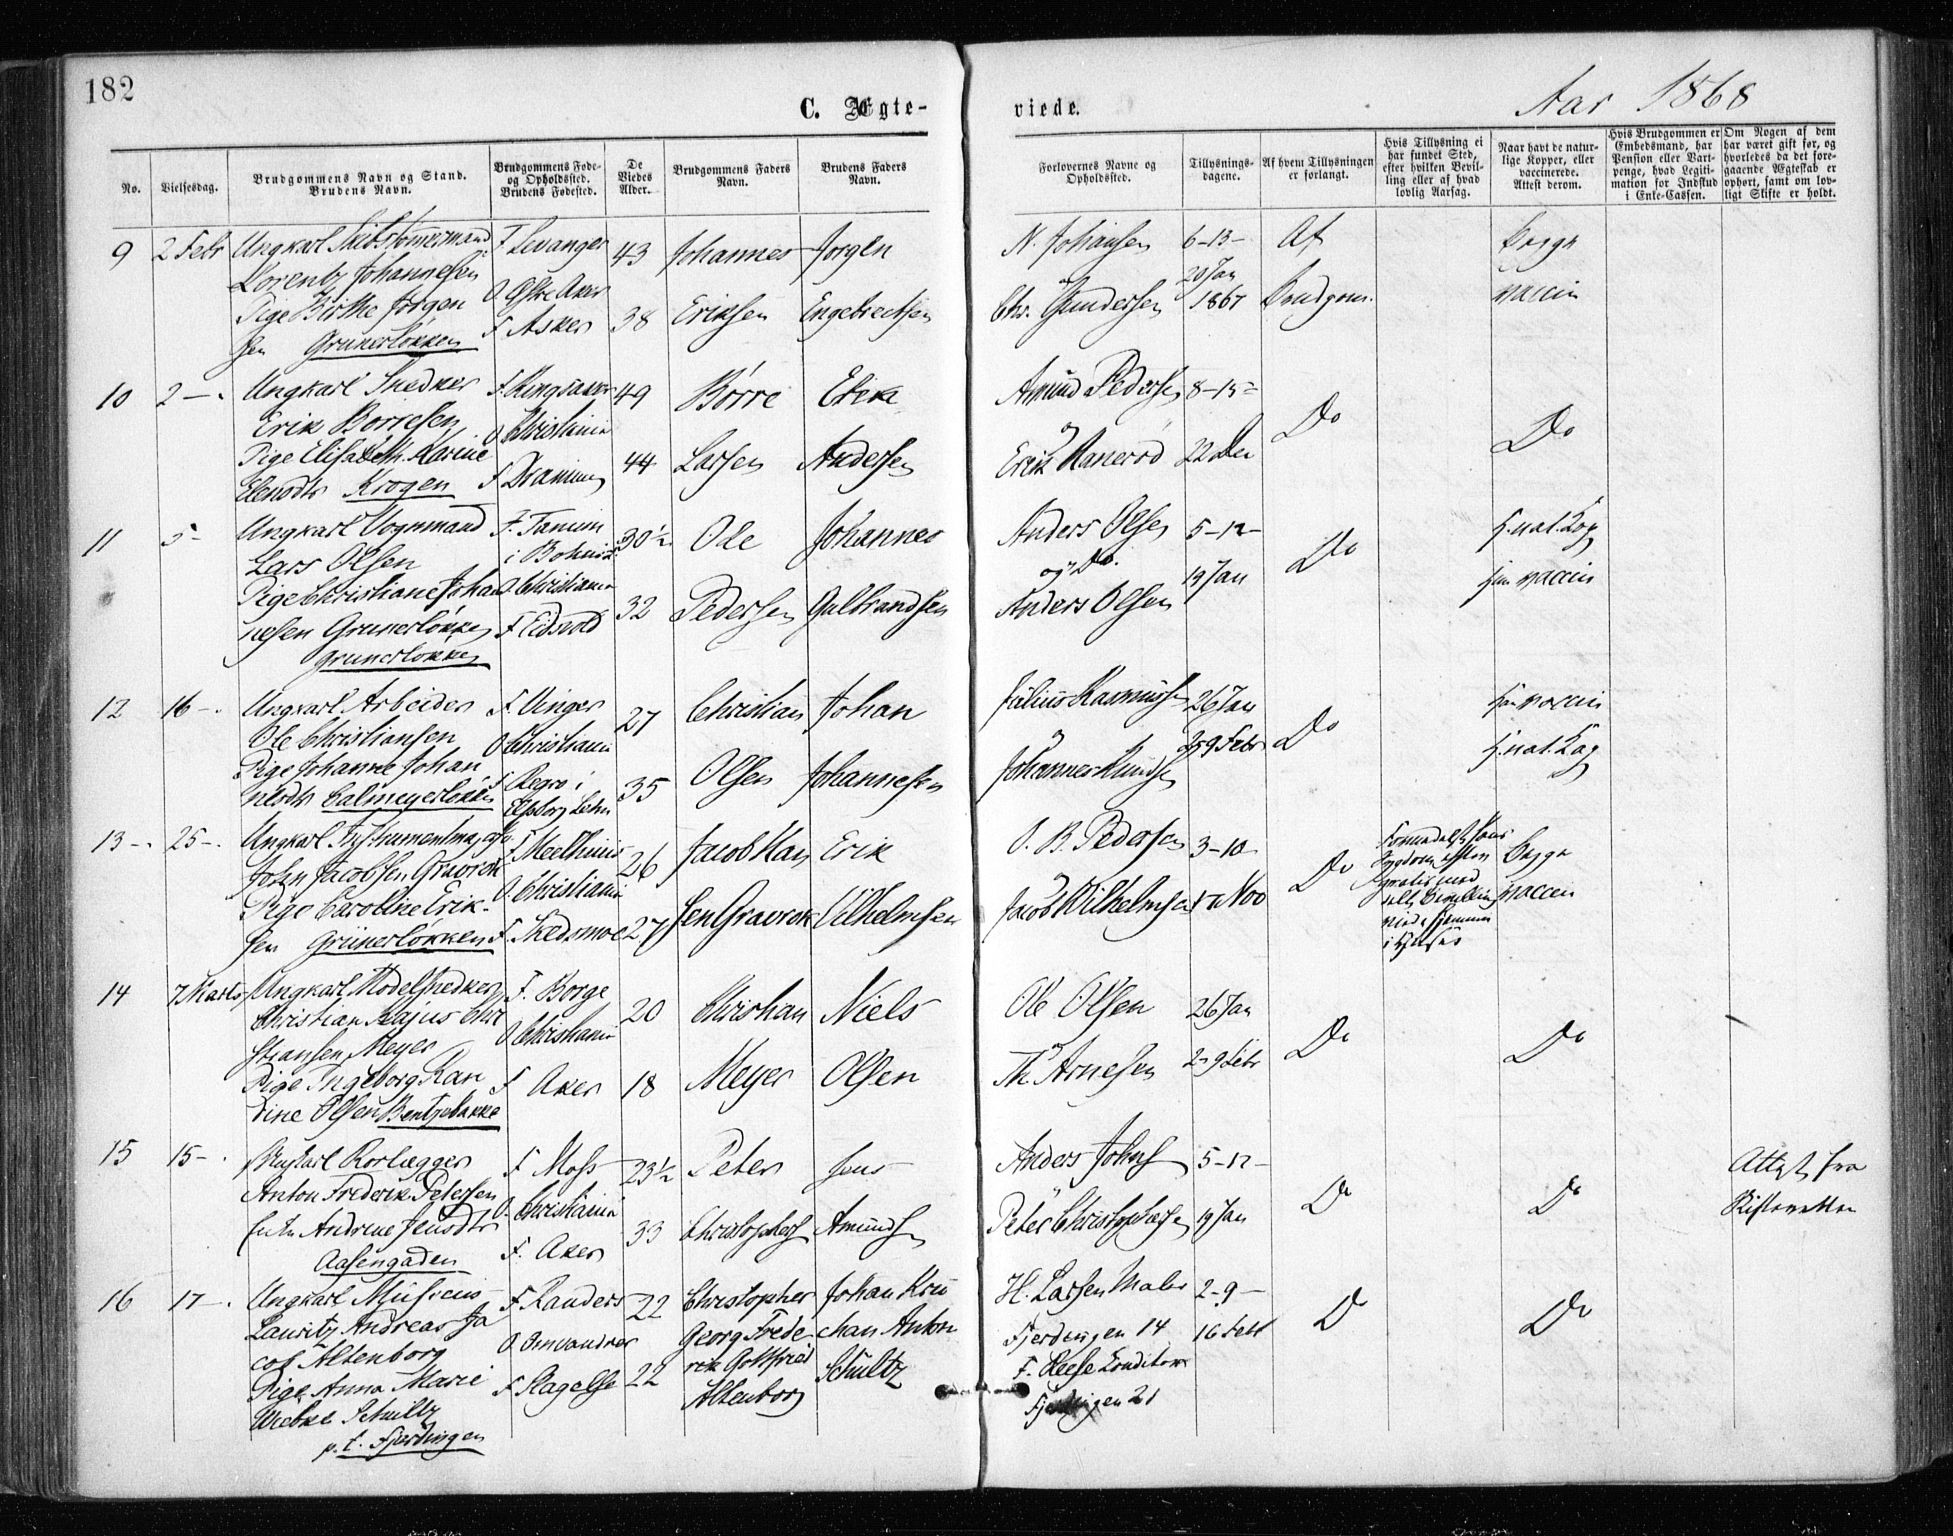 182
C. Ægte-
viede.
Aar 1868
No.
Vielsesdag.
Brudgommens Navn og Stand.
Brudens Navn.
Brudgommens Føde-
og Opholdssted.
Brudens Fødested.
De
Viedes
Alder.
Brudgommens Faders
Navn.
Brudens Faders
Navn.
Forlovernes Navne og
Opholdssted.
Tillysnings-
dagene.
Af hvem Tillysningen
er forlangt.
Hvis Tillysning ei
har fundet Sted,
efter hvilken Bevil-
ling eller af hvad
lovlig Aarsag.
Naar havt de natur-
lige Kopper, eller
vaccinerede.
Attest derom.
Hvis Brudgommen er
Embedsmand, har
Pension eller Vart-
penge, hvad Legiti-
mation for Indskud
i Enke-Cassen.
Om Nogen af dem
har været gift før, og
hvorledes da det fore-
gaaende Ægteskab er
ophørt, samt om lov-
ligt Skifte er holdt.
9
2 Febr
Ungkarl Skibstømmermand
Lorentz Johannesen
Pige Birthe Jørgen
sen Grunerløkken
F Levanger
O Østre Aker
F Asker
43
38
Johannes
Eriksen
Jørgen
Engebretsen
N. Johansen
Chr. Gundersen
6-13-
20 Jan
1867
Af
Brudgom.
begge
vaccin
10
2 -
Ungkarl Snedker
Erik Borresen
Pige Elisabeth Karine
Erensdtr Krogen
F. Ringsaker
O Christiania
F Drammen
49
44
Børre
Larsen
Erik
Andersen
Amund Pedersen
og
Erik Hanerød
8-15-
22 Dec
Do
Do
11
5-
Ungkarl Vognmand
Lars Olsen
Pige Christiane Johan
nesen Grunerløkken
Grunerløkken
F. Tanum
i Bohusln
O Christiania
F Eidsvold
30½
32
Ole
Pedersen
Johannes
Gulbrandsen
Anders Olsen
og Do.
Anders Olsen
5-12-
19 Jan
Do
h. nat. Kop
han vaccin
12
16 -
Ungkarl Arbeider
Ole Christiansen
Pige Johanne Johan
nesdtr Calmeyerløkken
F. Vinger
O Christiania
F Regro i
Elfsborg Lehn
27
35
Christian
Olsen
Johan
Johannesen
Julius Rasmussen
og
Johannes Knudsen
26 Jan
2-9 Febr
Do
han vaccin
h. nat. Kop
13 -
25 -
Ungkarl Instrumentmager
John Jacobsen Gravrok
Pige Caroline Erik-
sen Grünerløkken
F Meelhuus
O Christiania
F. Skedsmoe
26
27
Jacob Han
sen Gravrok
Erik
Vilhelmsen
O. B. Pedersen
Jacob Wilhelmsen
3-10
17 Nov
Do
begge
vaccin
14
7 Marts
Ungkarl Modelsnedker
Christian Kajus Chri
stiansen Meyer
Pige Ingeborg Ran
dine Olsen Bentsebakke
F. Borge
O Christiania
F Aker
20
18
Christian
Meyer
Niels
Olsen
Ole Olsen
og
Th Arnesen
26 Jan
2-9 Febr
Do
Do
15
15 -
Ungkarl Rørlægger
Anton Frederik Petersen
Enke Andrine Jensdtr
Aasengaden
F Moss
O. Christiania
F. Aker
23½
33
Peter
Christophers
Jens
Amunds
Anders Johns
Peter Christophersen
5-12-
19 Jan
Do
Do
Attest fra
Skifteretten
16
17 -
Ungkarl Musicus
Lauritz Andreas Ja
cob Altenborg
Pige Anna Marie
Wiebke Schultz
p. t. Fjerdingen
F Randers
O Omvandrer
F Slagelse
22
22
Christopher
Georg Frede
rik Gottfried
Altenborg
Johan Kri
stian Anton
Schultz
H. Larsen Maler
Fjerdingen 14
F. Heese Konditor
Fjerdingen 21
2-9-
16 Febr
Do
Do